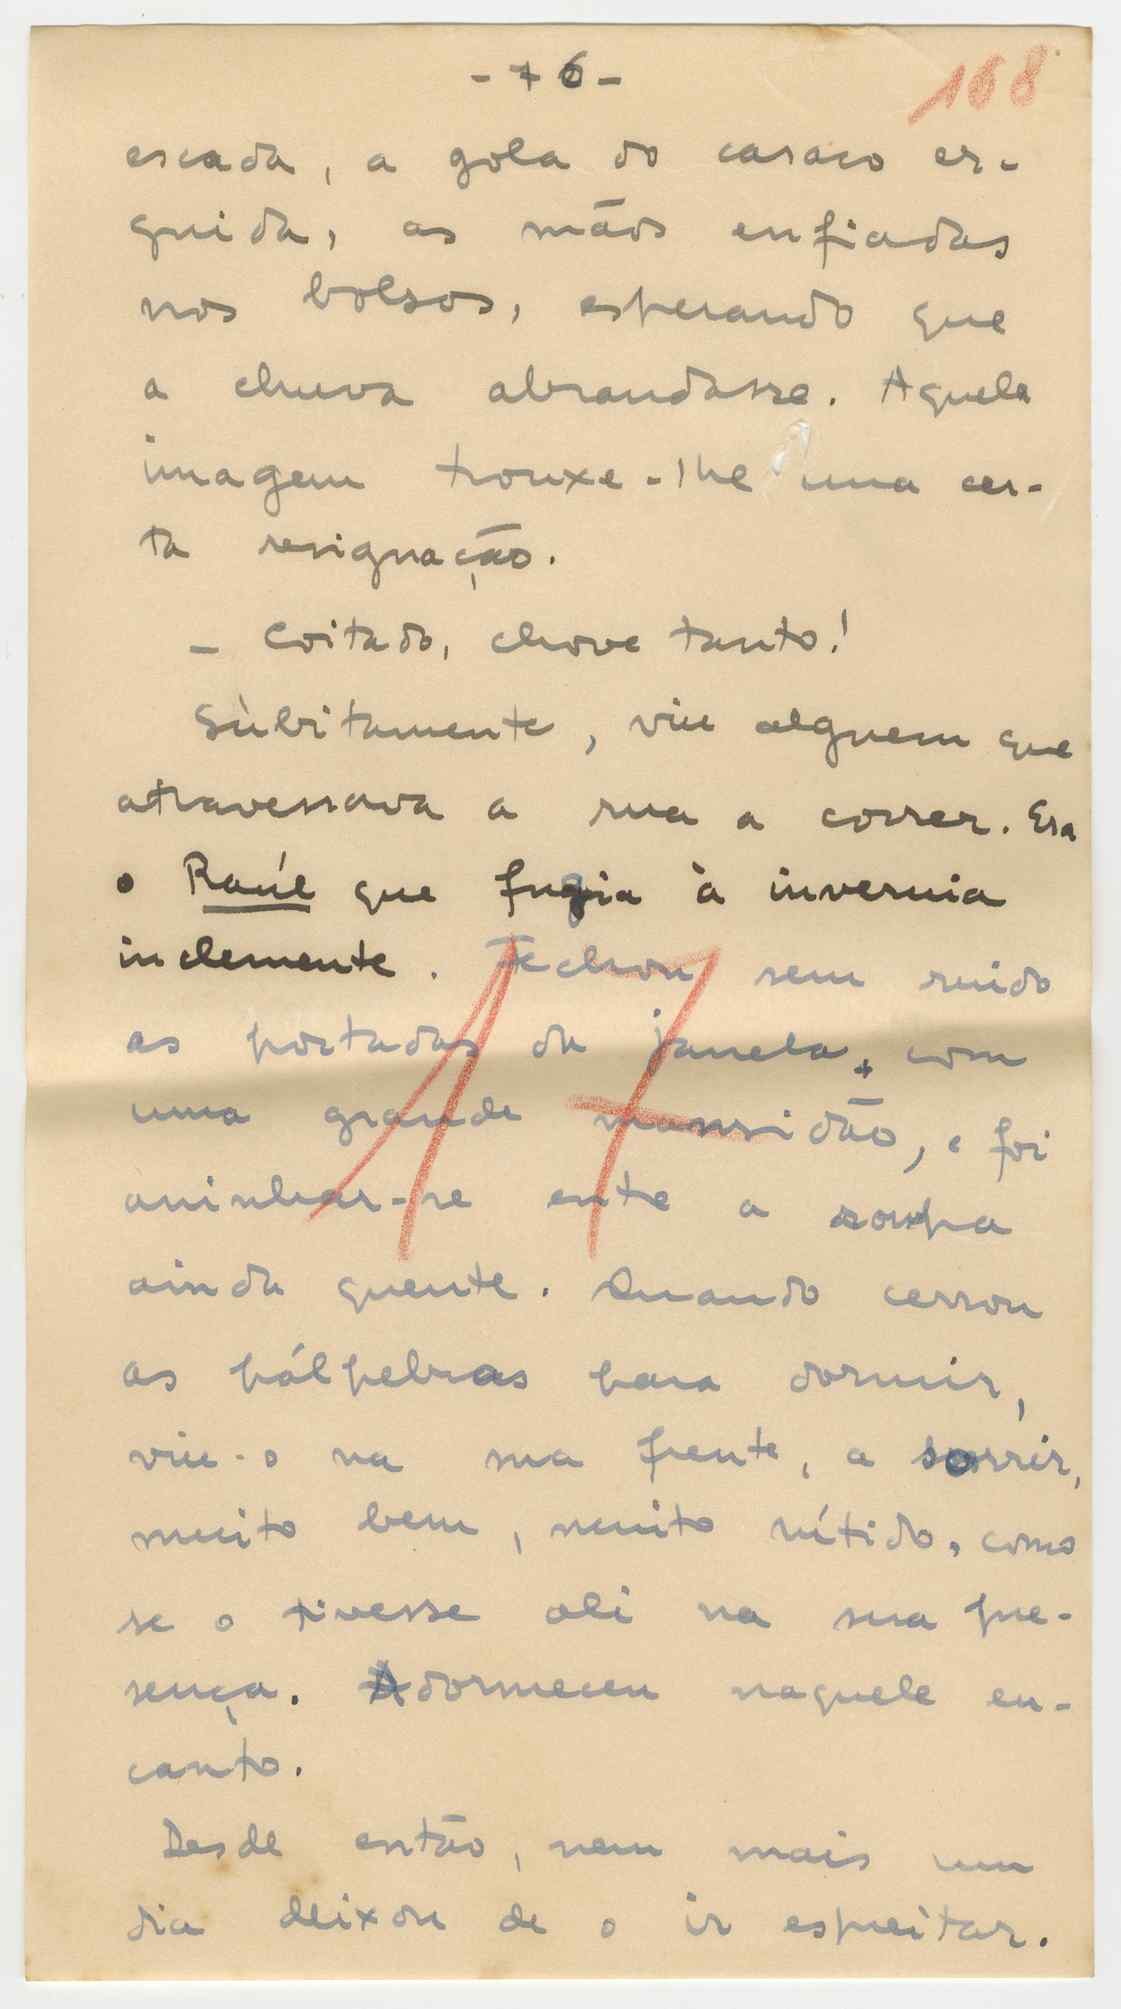 - 76 -
168
escada, a gola do casaco er-
guida, as mãos enfiadas
nos bolsos, esperando que
a chuva abrandasse. Aquela
imagem trouxe-lhe uma cer-
ta resignação.
- Coitado, chove tanto!
Sùbitamente, viu alguem que
atravessava a rua a correr. Era
o Raúl que fugia à invernia
inclemente. Fechou sem ruido
as portadas da janela, com
uma grande mansidão, e foi
aninhar-se entre a roupa
ainda quente. Quando cerrou
as pálpebras para dormir,
viu-o na sua frente, a sorrir,
muito bem, muito nítido, como
se o tivesse ali na sua pre-
sença. Adormeceu naquele en-
canto.
Desde então, nem mais um
dia deixou de o ir espreitar.
17